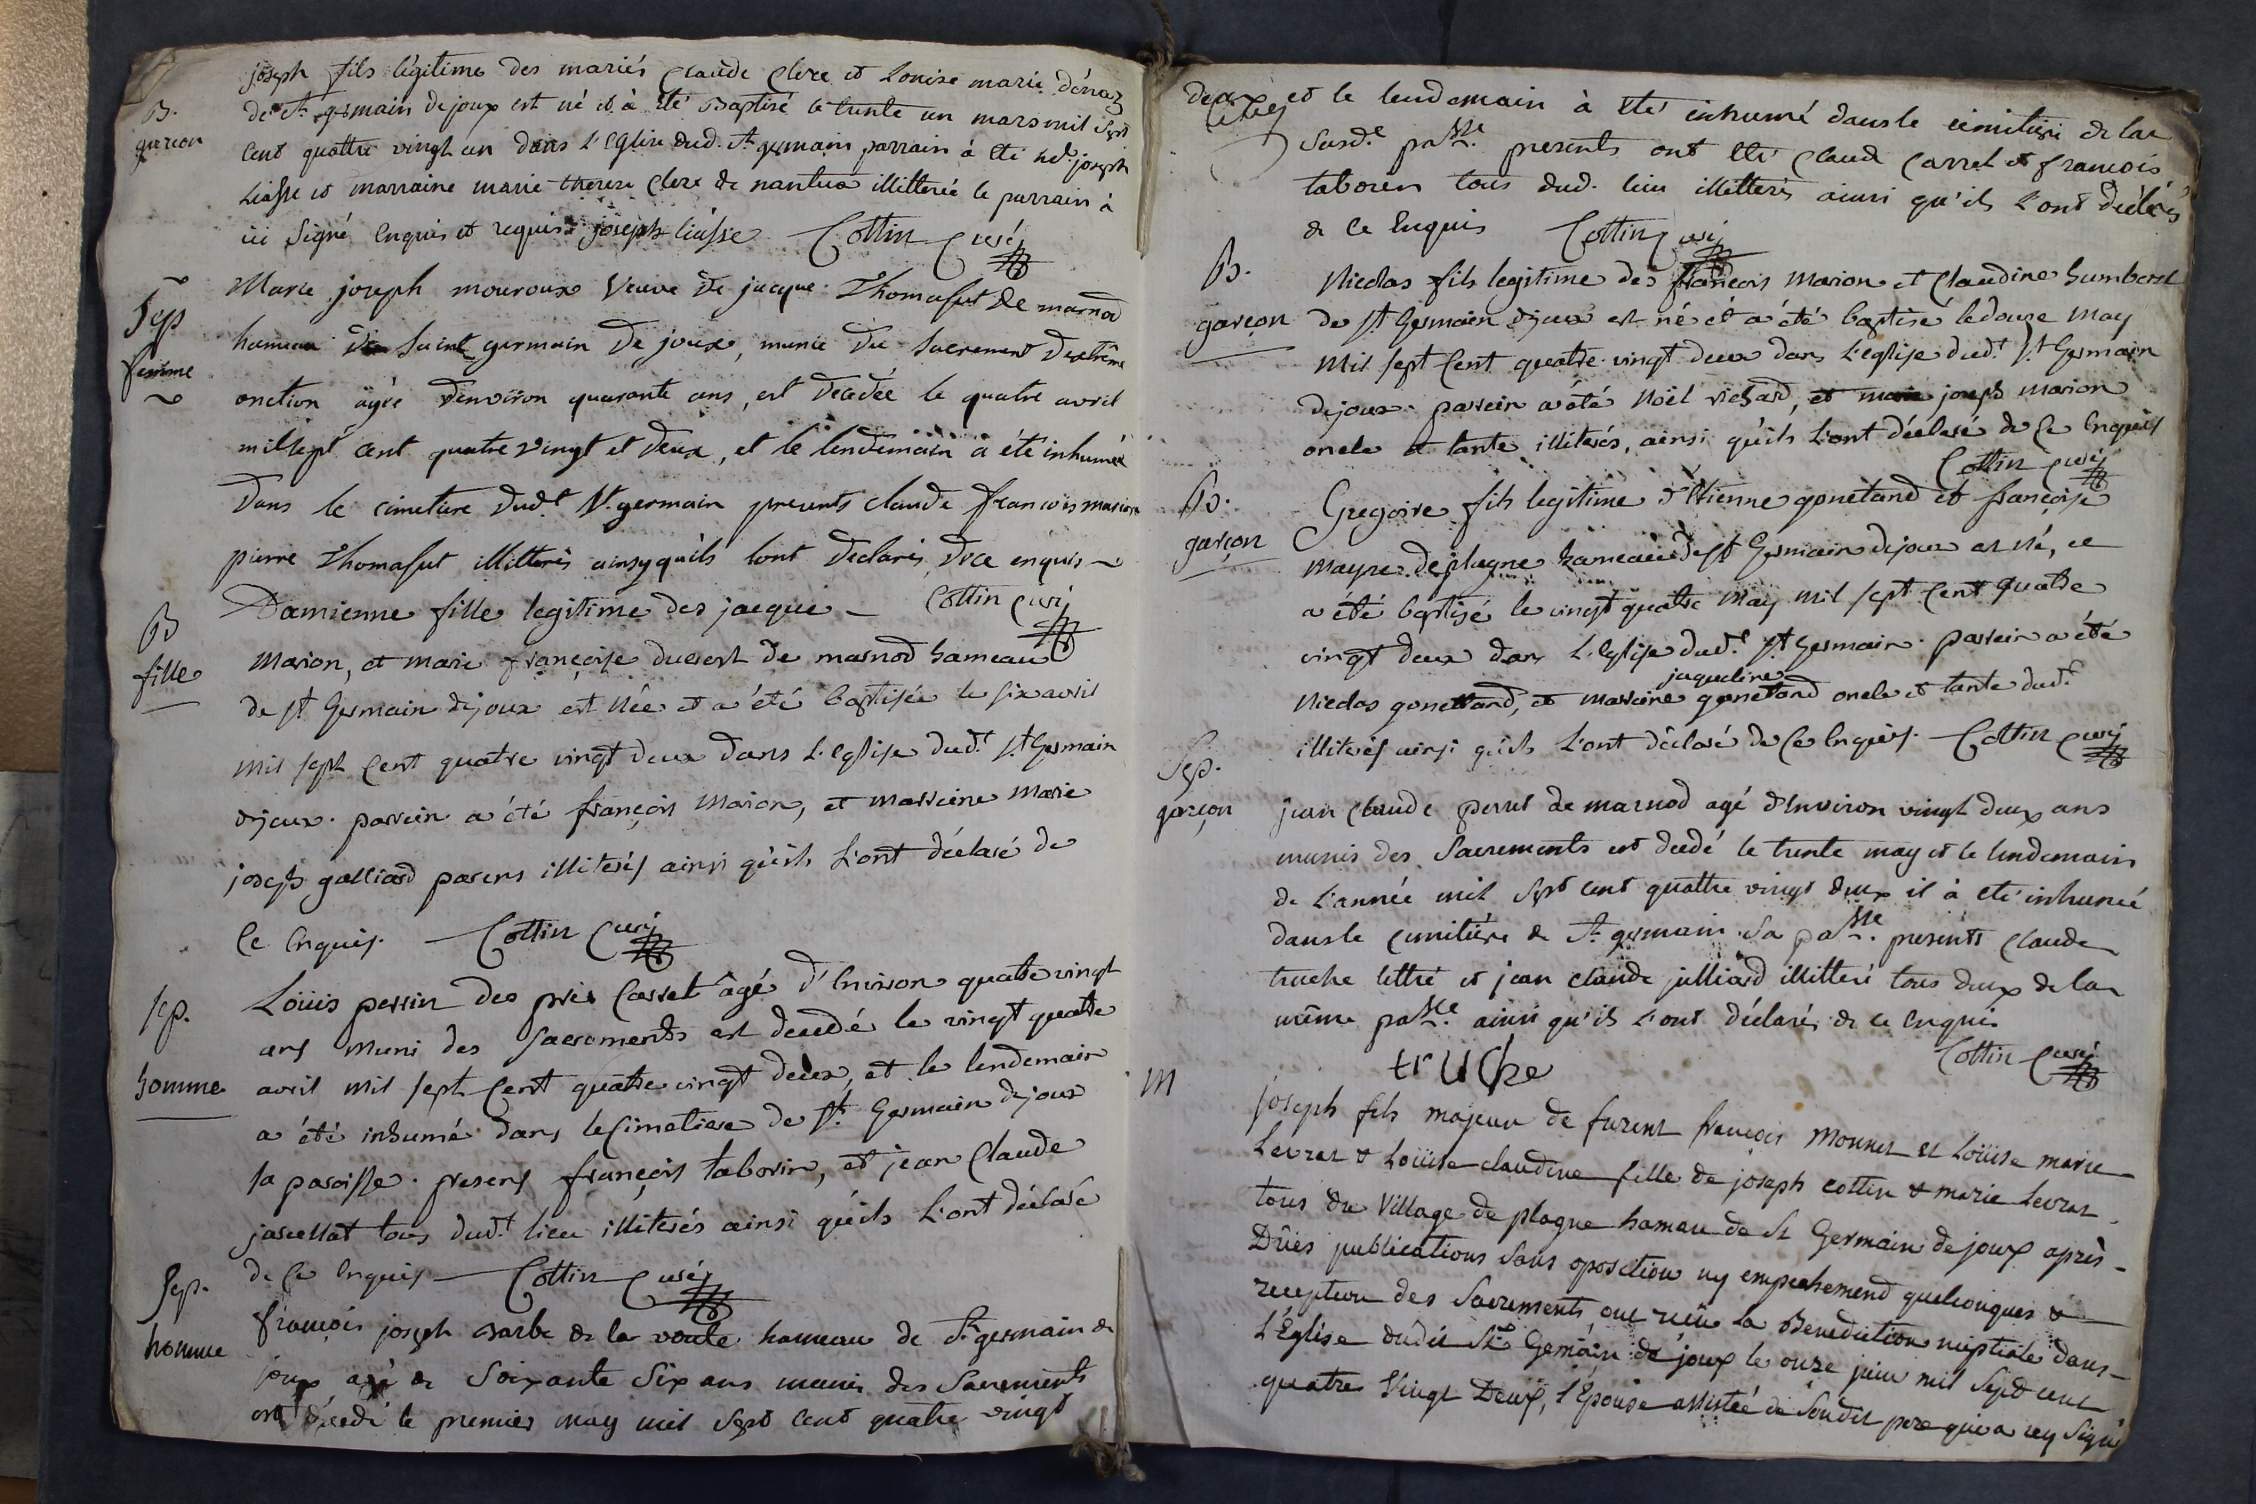 B.
garcon
joseph fils légitime des mariés claude clerc et Louise marie dénaz
de St germain dejoux est né et à été Baptisé le trente un mars mil Sept
Cent quattre vingt un dans l'Eglise dud. St germain parrain à été joseph
Liasse et marraine marie therese clerc de nantua illitterée le parrain à
ici Signé Enquis et requis joseph liasse Cottin Curé
Sep
femme
Marie joseph mouroux Veuve de jacque Thomasset de marnod
hameau de Saint germain De joux, munie du Sacrement Dextrême
onction agée Denviron quarante ans, est Decedée le quatre avril
mil sept cent quatre vingt et Deux, et le lendemain a été inhumée
Dans le cimetiere Dudt St germain presents claude francois marion
pierre Thomasset illitterés ainsy quils lont Declarés Dece enquis
Cottin curé
B
fille
Damienne fille legitime des jacque
Marion, et marie françoise ducrest de marnod hameau
de St Germain dejoux est née et a été baptisée le six avril
mil sept cent quatre vingt deux dans l'Eglise dudt St Germain
dejoux. parrein a été françois Marion, et marreine Marie
joseph galliard parens illiterés ainsi qu'ils l'ont déclaré de
Ce Enquis. Cottin Curé
sep.
homme
Loüis perrin des près Carret âgé d'Environ quatre vingt
ans muni des Sacrements est decedé le vingt quatre
avril mil sept Cent quatre vingt deux, et le lendemain
a été inhumé dans le Cimetiere de St Germain dejoux
sa paroisse. presens françois taborin, et jean Claude
jacellat tous dudt lieu illiterés ainsi qu'ils l'ont déclaré
de Ce Enquis Cottin Curé
Sep.
homme
françois joseph Barbe de la voute hameau de St germain de
joux agé de Soixante Six ans munis des Sacrements
est décedé le premier may mil Sept Cent quatre vingt
deux et le lendemain à été inhumé dans le cimitière de la
Susde passe. presents ont été claud Carret et francois
taboren tous dud. lieu illitterés ainsi qu'ils l'ont déclarés
de Ce Enquis Cottin Curé
B.
garcon
Nicolas fils legitime des francois Marion et Claudine humbert
de St Germain dejoux est né et a été baptisé le douze May
mil sept Cent quatre vingt deux dans l'eglise dudt St Germain
dejoux. parrein a été Noël richard, et marie joseph marion
oncle et tante illiterés, ainsi qu'ils l'ont déclaré de Ce Enquis
Cottin curé
B.
garçon
Gregoire fils legitime d'Etienne gonetand et françoise
Mayre de plagne hameau de St Germain dejoux est né, et
a été baptisé le vingt quatre May mil sept Cent quatre
vingt deux dans l'Eglise dudt St Germain. parrein a été
jaqueline
Nicolas gonettand, et marreine gonetand oncle et tante dudt
illiterés ainsi qu'ils l'ont déclaré de Ce Enquis. Cottin curé
Sep.
garçon
jean claude perret de marnod agé d'Environ vingt deux ans
munis des Sacrements est decdé le trente may et le lendemain
de l'année mil Sept cent quattre vingt deux il à été inhumé
dans le cimitière de St germain Sa passe. presents claude
truche lettré et jean claude julliard illitteré tous deux de la
même passe ainsi qu'ils l'ont déclarés de ce Enquis
Cottin Curé
truche
M
joseph fils majeur de furent françois Monnet et Loüise marie
Levrat & Loüise claudine fille de joseph cottin & marie Levrat
tous du Village de plagne hamau de St Germain de joux après
Dües publications Sans oposition ny empechement quelconques &
reception des Sacrements, ont reçu la Benediction nuptiale dans
l'Église dudit St Gemain de joux le onze juin mil Sept cent
quatre Vingt Deux, l'Épouse assistée de Sondit pere qui a icy Signé